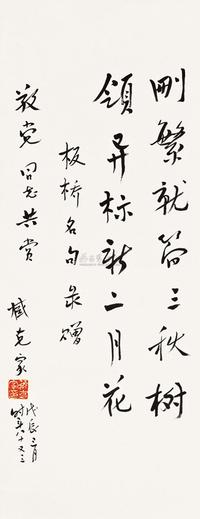 刪繁就简三秋树
領异标新二月花
板桥名句录赠
党同志共赏
臧克家
戊辰三月
时年八十又三